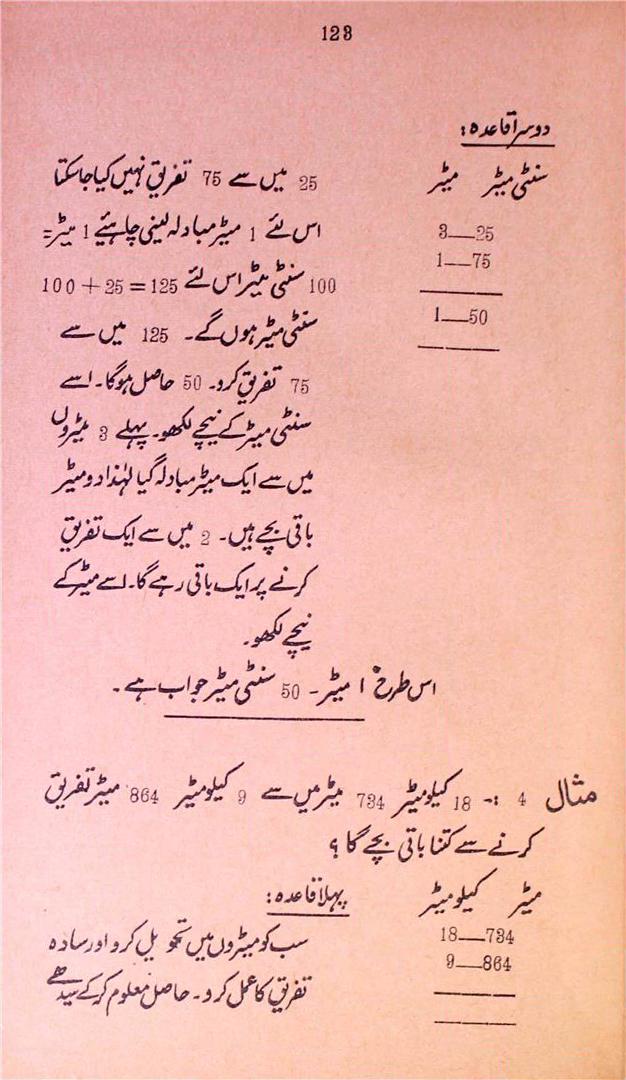 123
دوسرا قاعدہ:
سنٹی میٹر میٹر
3—25
1—75
1—50
25 میں سے 75 تفریق نہیں کیا جا سکتا
اس لئے 1 میٹر مبادلہ لینی چاہئیے 1 میٹر=
100 سنٹی میٹر اس لئے 100+25=125
سنٹی میٹر ہوں گے۔ 125 میں سے
75 تفریق کرو۔ 50 حاصل ہوگا۔ اسے
سنٹی میٹر کے نیچے لکھو۔ پہلے 3 میٹروں
میں سے ایک میٹر مبادلہ گیا لہٰذا دو میٹر
باقی بچے ہیں۔ 2 میں سے ایک تفریق
کرنے پر ایک باقی رہے گا۔ اسے میٹر کے
نیچے لکھو۔
اس طرح 1 میٹر۔ 50 سنٹی میٹر جواب ہے۔
مثال 4 :- 18 کیلومیٹر 734 میٹر میں سے 9 کیلومیٹر 864 میٹر تفریق
کرنے سے کتنا باقی بچے گا؟
میٹر کیلومیٹر
18—734
9—864
پہلا قاعدہ:
سب کو میٹروں میں تحویل کرو اور سادہ
تفریق کا عمل کرو۔ حاصل معلوم کر کے سیدھے